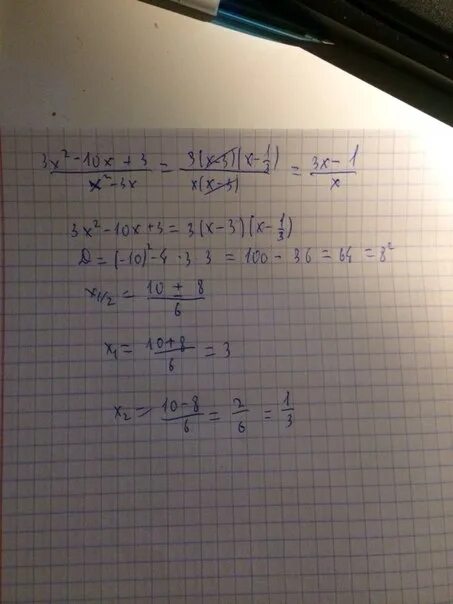 3x² - 10x + 3 / x² - 3x = 3(x-3)(x - 1/3) / x(x-3) = 3x - 1 / x
3x² - 10x + 3 = 3(x-3)(x - 1/3)
D = (-10)² - 4 · 3 · 3 = 100 - 36 = 64 = 8²
x1/2 = 10 ± 8 / 6
x₁ = 10+8 / 6 = 3
x₂ = 10-8 / 6 = 2/6 = 1/3